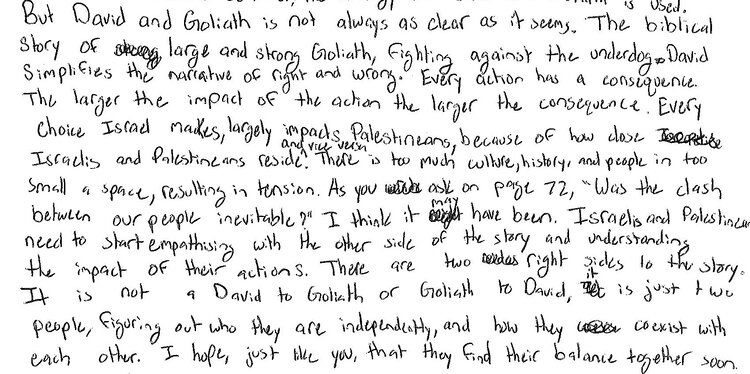 is used.
But David and Goliath is not always as clear as it seems. The biblical
story of large and strong Goliath, fighting against the underdog David
simplifies the narrative of right and wrong. Every action has a consequence.
The larger the impact of the action the larger the consequence. Every
choice Israel makes, largely impacts Palestineans, because of how close
Israelis and Palestineans reside and vice versa. There is too much culture, history, and people in too
small a space, resulting in tension. As you ask on page 72, "Was the clash
between our people inevitable?" I think it may have been. Israelis and Palestinean
need to start empathising with the other side of the story and understanding
the impact of their actions. There are two right sides to the story.
It is not a David to Goliath or Goliath to David, it is just two
people, figuring out who they are independently, and how they coexist with
each other. I hope, just like you, that they find their balance together soon.